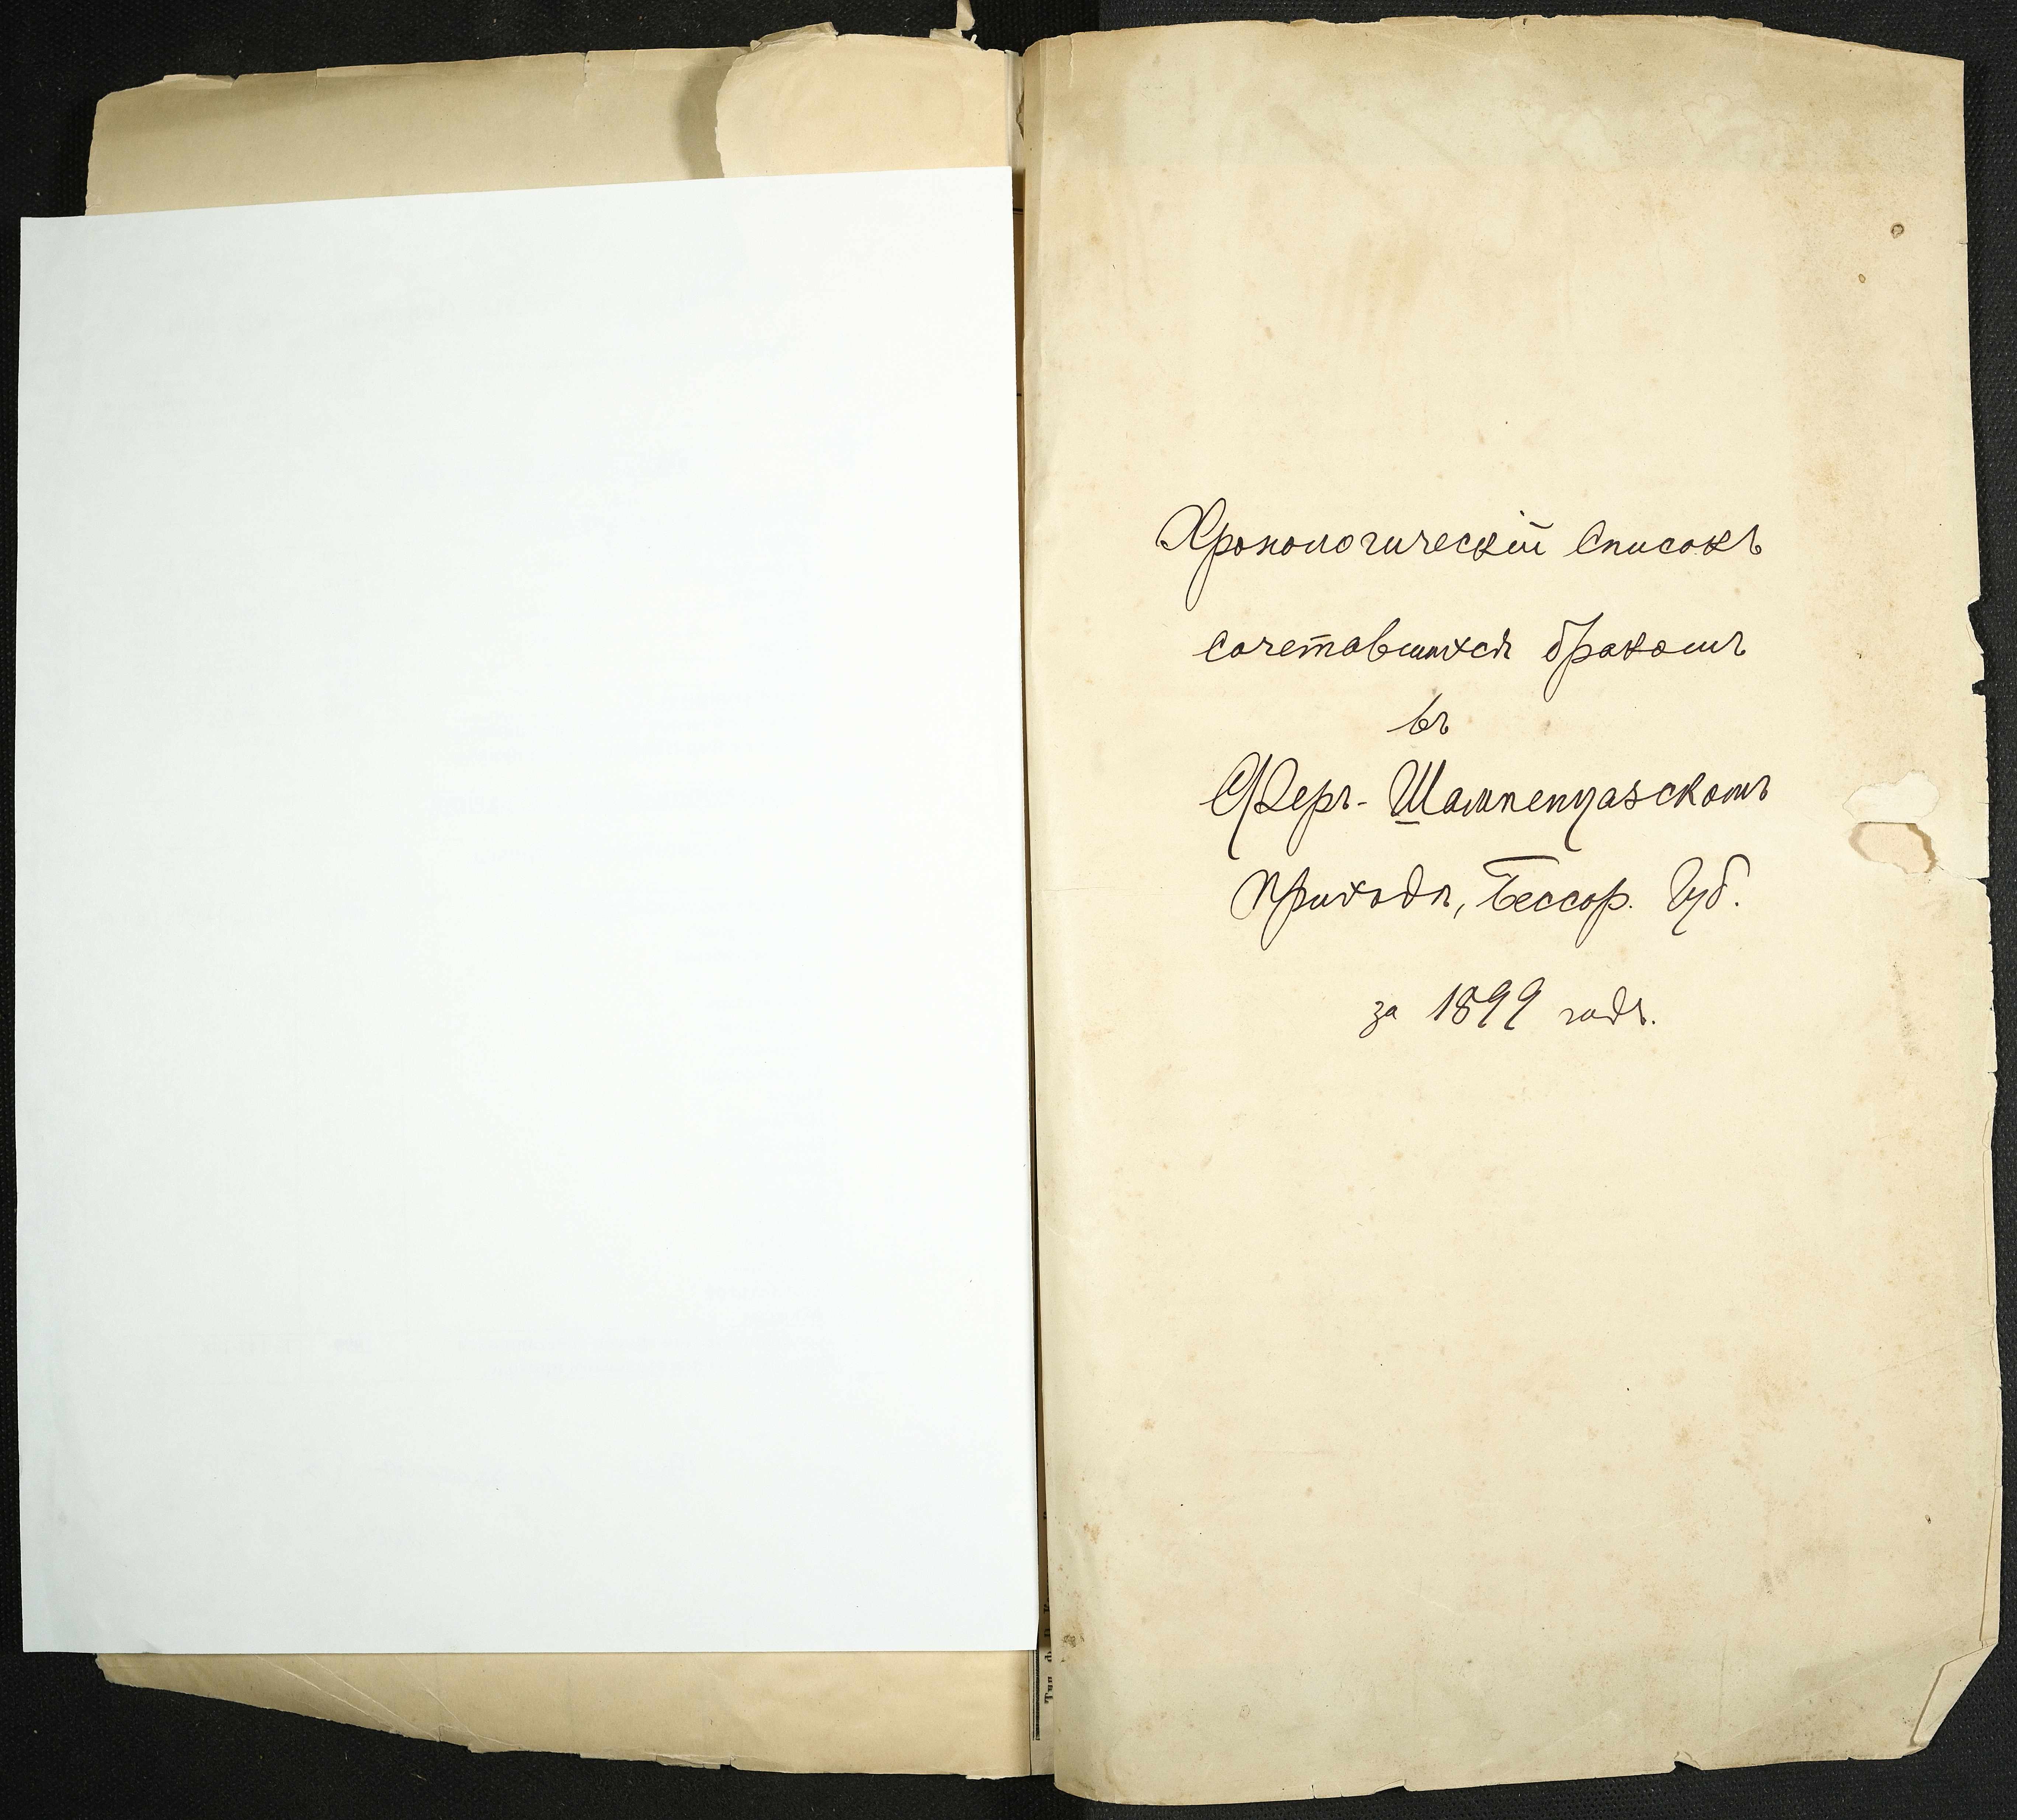 Хронологическій Списокъ
сочетавшихся бракомъ
въ
Феръ-Шампенуазскомъ
приходѣ, Бессар. Губ.
за 1899 годъ.